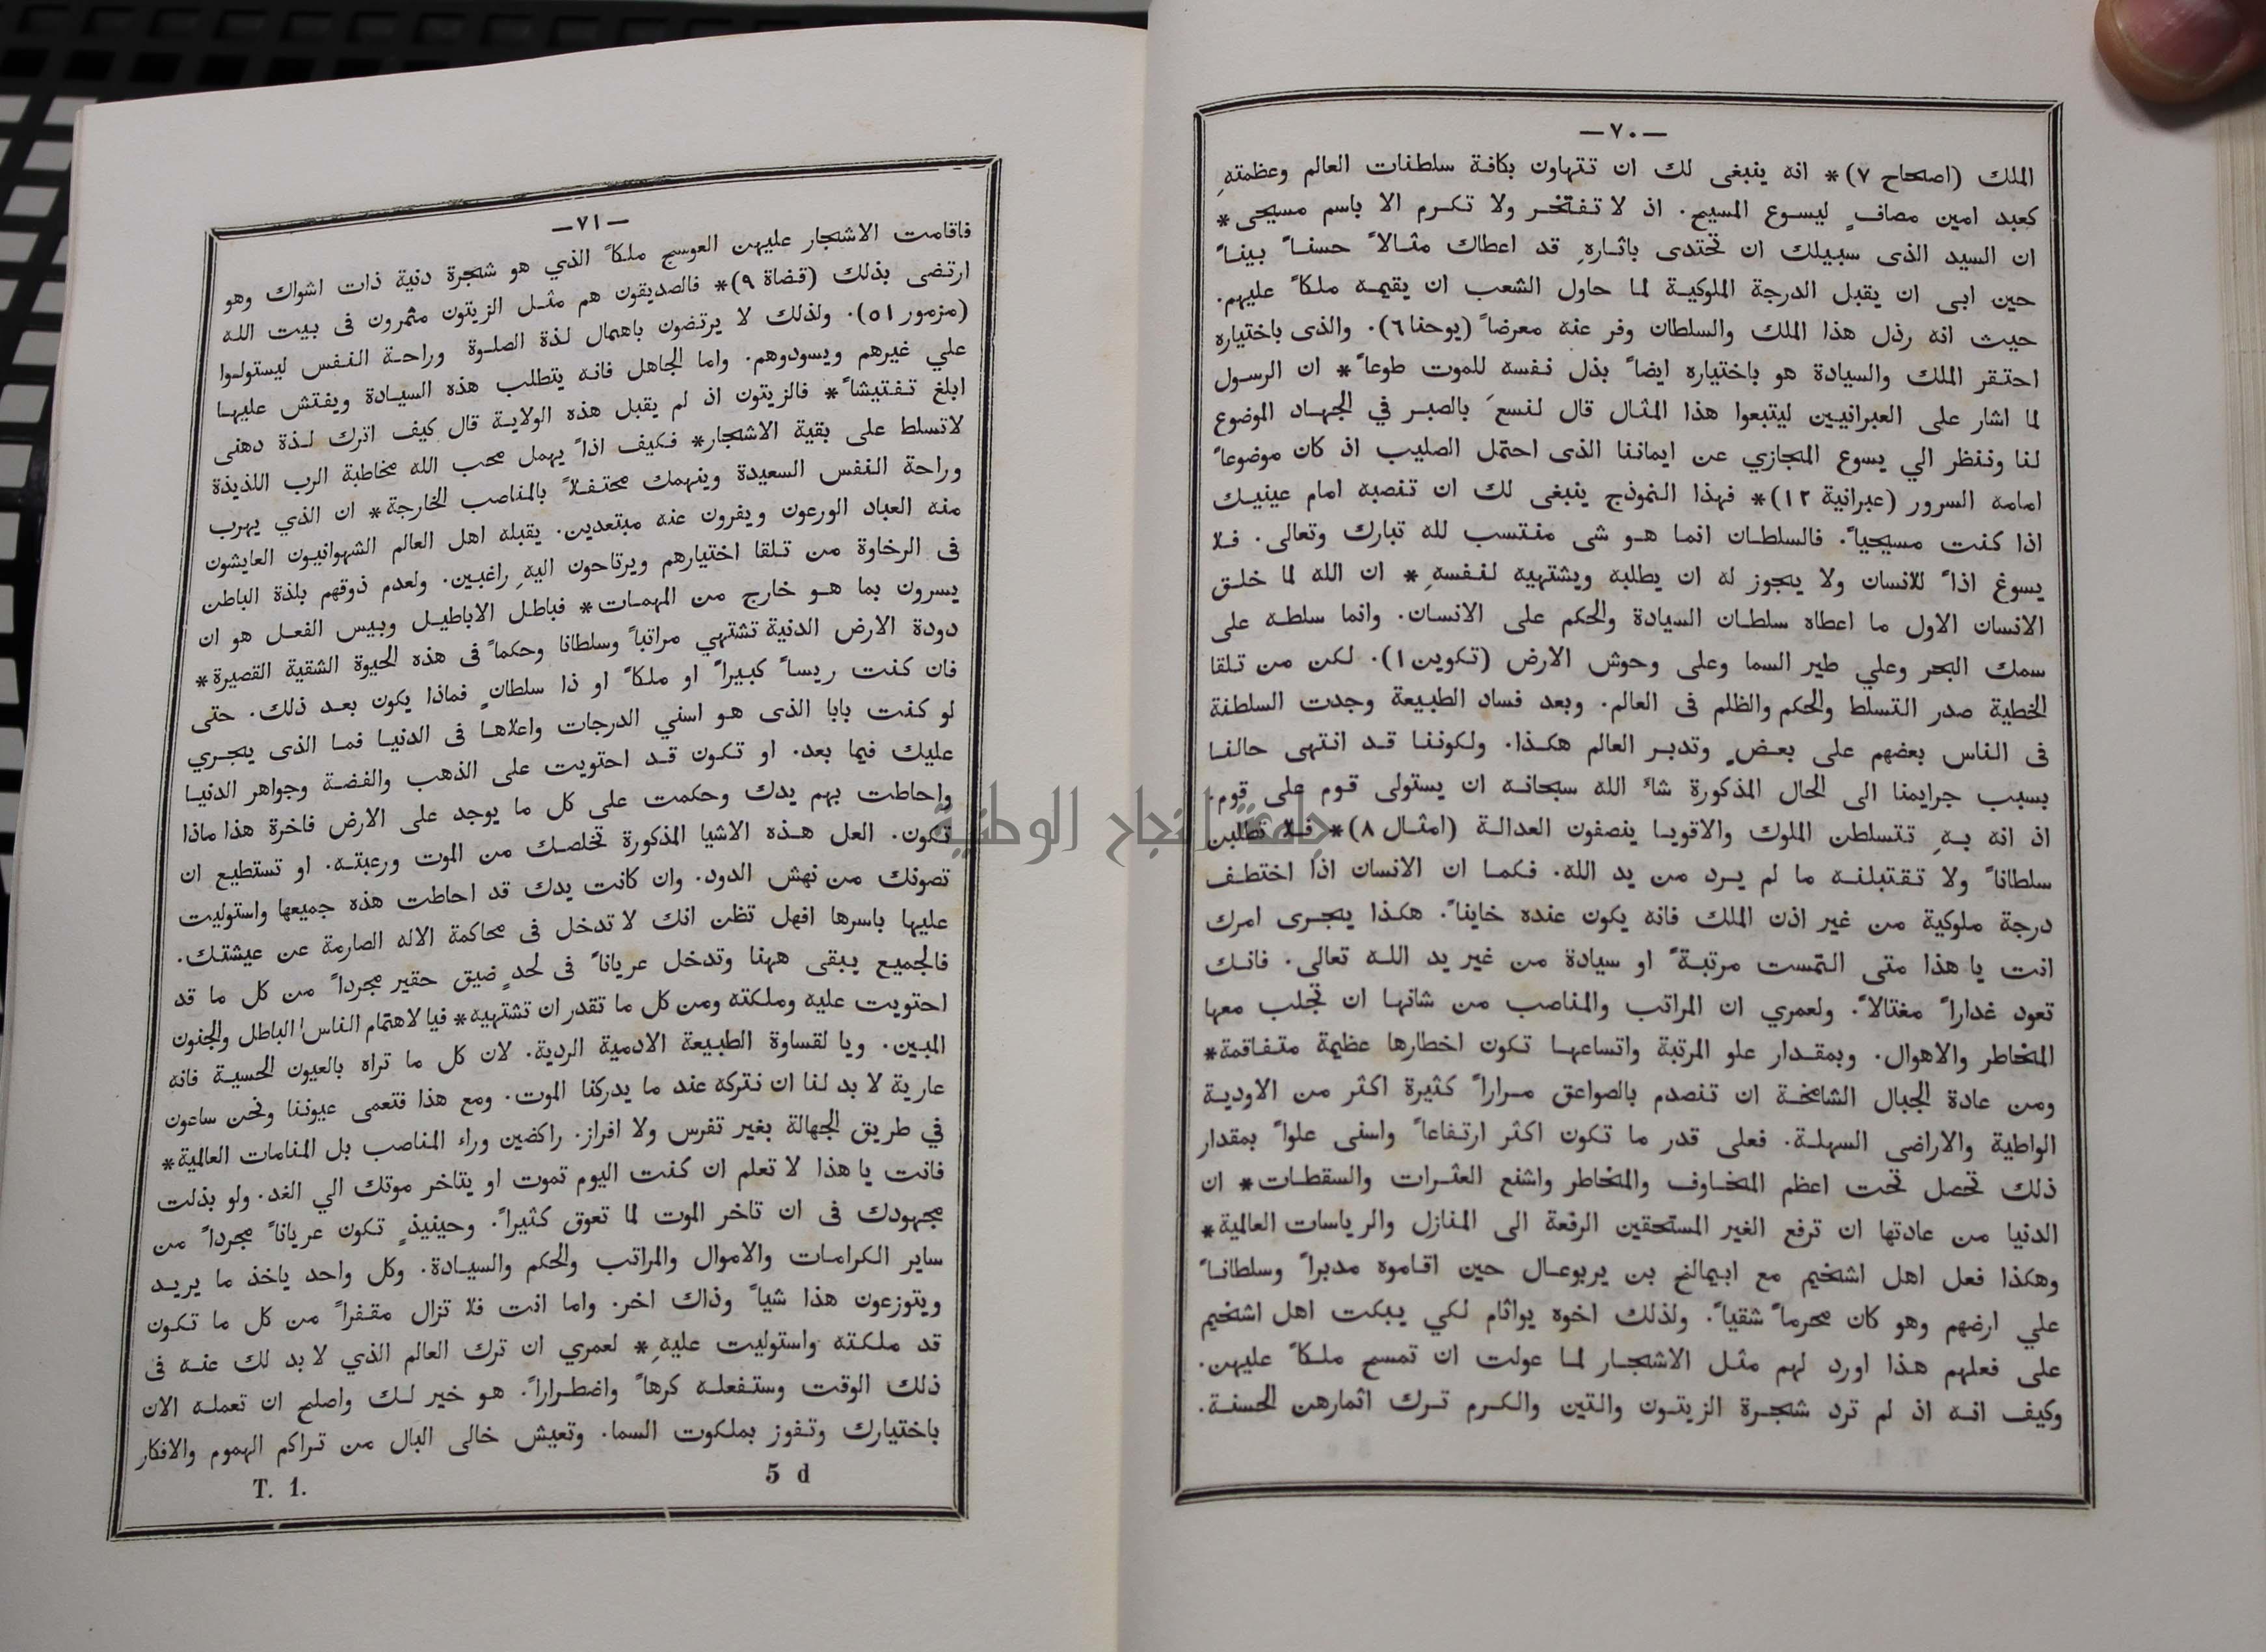 —٧٠—
الملك (اصحاح ٧)* انه ينبغى لك ان تتهاون بكافة سلطنات العالم وعظمتهِ
كعبد امين مصافٍ ليسوع المسيح. اذ لا تفتخر ولا تكرم الا باسم مسيحى*
ان السيد الذى سبيلك ان تحتدى باثارهِ قد اعطاك مثالاً حسناً بيناً
حين ابى ان يقبل الدرجة الملوكية لما حاول الشعب ان يقيمه ملكاً عليهم.
حيث انه رذل هذا الملك والسلطان وفر عنه معرضاً (يوحنا ٦). والذى باختياره
احتقر الملك والسيادة هو باختياره ايضاً بذل نفسه للموت طوعاً* ان الرسول
لما اشار على العبرانيين ليتبعوا هذا المثال قال لنسعَ بالصبر في الجهاد الموضوع
لنا وننظر الي يسوع المجازي عن ايماننا الذى احتمل الصليب اذ كان موضوعاً
امامه السرور (عبرانية ١٢)* فهذا النموذج ينبغى لك ان تنصبه امام عينيك
اذا كنت مسيحياً. فالسلطان انما هو شى منتسب لله تبارك وتعالى. فلا
يسوغ اذاً للانسان ولا يجوز له ان يطلبه ويشتهيه لنفسهِ* ان الله لما خلق
الانسان الاول ما اعطاه سلطان السيادة والحكم على الانسان. وانما سلطه على
سمك البحر وعلي طير السما وعلى وحوش الارض (تكوين ١). لكن من تلقا
الخطية صدر التسلط والحكم والظلم فى العالم. وبعد فساد الطبيعة وجدت السلطنة
فى الناس بعضهم على بعضٍ وتدبر العالم هكذا. ولكوننا قد انتهى حالنا
بسبب جرايمنا الى الحال المذكورة شاءَ الله سبحانه ان يستولى قوم على قوم.
اذ انه بهِ تتسلطن الملوك والاقويا ينصفون العدالة (امثال ٨)* فلا تطلبن
سلطاناً ولا تقتبلنه ما لم يرد من يد الله. فكما ان الانسان اذا اختطف
درجة ملوكية من غير اذن الملك فانه يكون عنده خايناً. هكذا يجرى امرك
انت يا هذا متى التمست مرتبةً او سيادة من غير يد الله تعالى. فانك
تعود غداراً مغتالاً. ولعمري ان المراتب والمناصب من شانها ان تجلب معها
المخاطر والاهوال. وبمقدار علو المرتبة واتساعها تكون اخطارها عظيمة متفاقمة*
ومن عادة الجبال الشامخة ان تنصدم بالصواعق مراراً كثيرة اكثر من الاودية
الواطية والاراضى السهلة. فعلى قدر ما تكون اكثر ارتفاعاً واسنى علواً بمقدار
ذلك تحصل تحت اعظم المخاوف والمخاطر واشنع العثرات والسقطات* ان
الدنيا من عادتها ان ترفع الغير المستحقين الرفعة الى المنازل والرياسات العالمية*
وهكذا فعل اهل اشخيم مع ابيمالخ بن يربوعال حين اقاموه مدبراً وسلطاناً
علي ارضهم وهو كان مجرماً شقياً. ولذلك اخوه يواثام لكي يبكت اهل اشخيم
على فعلهم هذا اورد لهم مثل الاشجار لما عولت ان تمسح ملكاً عليهن.
وكيف انه اذ لم ترد شجرة الزيتون والتين والكرم ترك اثمارهن الحسنة.
—٧١—
فاقامت الاشجار عليهن العوسج ملكاً الذي هو شجرة دنية ذات اشواك وهو
ارتضى بذلك (قضاة ٩)* فالصديقون هم مثل الزيتون مثمرون فى بيت الله
(مزمور ٥١). ولذلك لا يرتضون باهمال لذة الصلوة وراحة النفس ليستولوا
علي غيرهم ويسودوهم. واما الجاهل فانه يتطلب هذه السيادة ويفتش عليها
ابلغ تفتيشاً* فالزيتون اذ لم يقبل هذه الولاية قال كيف اترك لذة دهنى
لاتسلط على بقية الاشجار* فكيف اذاً يهمل محب الله مخاطبة الرب اللذيذة
وراحة النفس السعيدة وينهمك محتفلاً بالمناصب الخارجة* ان الذي يهرب
منه العباد الورعون ويفرون عنه مبتعدين. يقبله اهل العالم الشهوانيون العايشون
فى الرخاوة من تلقا اختيارهم ويرتاحون اليهِ راغبين. ولعدم ذوقهم بلذة الباطن
يسرون بما هو خارج من المهمات* فباطل الاباطيل وبيس الفعل هو ان
دودة الارض الدنية تشتهي مراتباً وسلطانا وحكماً فى هذه الحيوة الشقية القصيرة*
فان كنت ريساً كبيراً او ملكاً او ذا سلطانٍ فماذا يكون بعد ذلك. حتى
لو كنت بابا الذى هو اسني الدرجات واعلاها فى الدنيا فما الذى يجري
عليك فيما بعد. او تكون قد احتويت على الذهب والفضة وجواهر الدنيا
واحاطت بهم يدك وحكمت على كل ما يوجد على الارض فاخرة هذا ماذا
تكون. العل هذه الاشيا المذكورة تخلصك من الموت ورعبته. او تستطيع ان
تصونك من نهش الدود. وان كانت يدك قد احاطت هذه جميعها واستوليت
عليها باسرها افهل تظن انك لا تدخل فى محاكمة الاله الصارمة عن عيشتك.
فالجميع يبقى ههنا وتدخل عرياناً فى لحدٍ ضيق حقير مجرداً من كل ما قد
احتويت عليه وملكته ومن كل ما تقدر ان تشتهيه* فيا لاهتمام الناس الباطل والجنون
المبين. ويا لقساوة الطبيعة الادمية الردية. لان كل ما تراه بالعيون الحسية فانه
عارية لا بد لنا ان نتركه عند ما يدركنا الموت. ومع هذا فتعمى عيوننا ونحن ساعون
في طريق الجهالة بغير تفرس ولا افراز. راكضين وراء المناصب بل المنامات العالمية*
فانت يا هذا لا تعلم ان كنت اليوم تموت او يتاخر موتك الي الغد. ولو بذلت
مجهودك فى ان تاخر الموت لما تعوق كثيراً. وحينيذٍ تكون عرياناً مجرداً من
ساير الكرامات والاموال والمراتب والحكم والسيادة. وكل واحد ياخذ ما يريد
ويتوزعون هذا شياً وذاك اخر. واما انت فلا تزال مقفراً من كل ما تكون
قد ملكته واستوليت عليهِ* لعمري ان ترك العالم الذي لا بد لك عنه فى
ذلك الوقت وستفعله كرهاً واضطراراً. هو خير لك واصلح ان تعمله الان
باختيارك وتفوز بملكوت السما. وتعيش خالى البال من تراكم الهموم والافكار
T. 1. 5 d
جامعة النجاح الوطنية